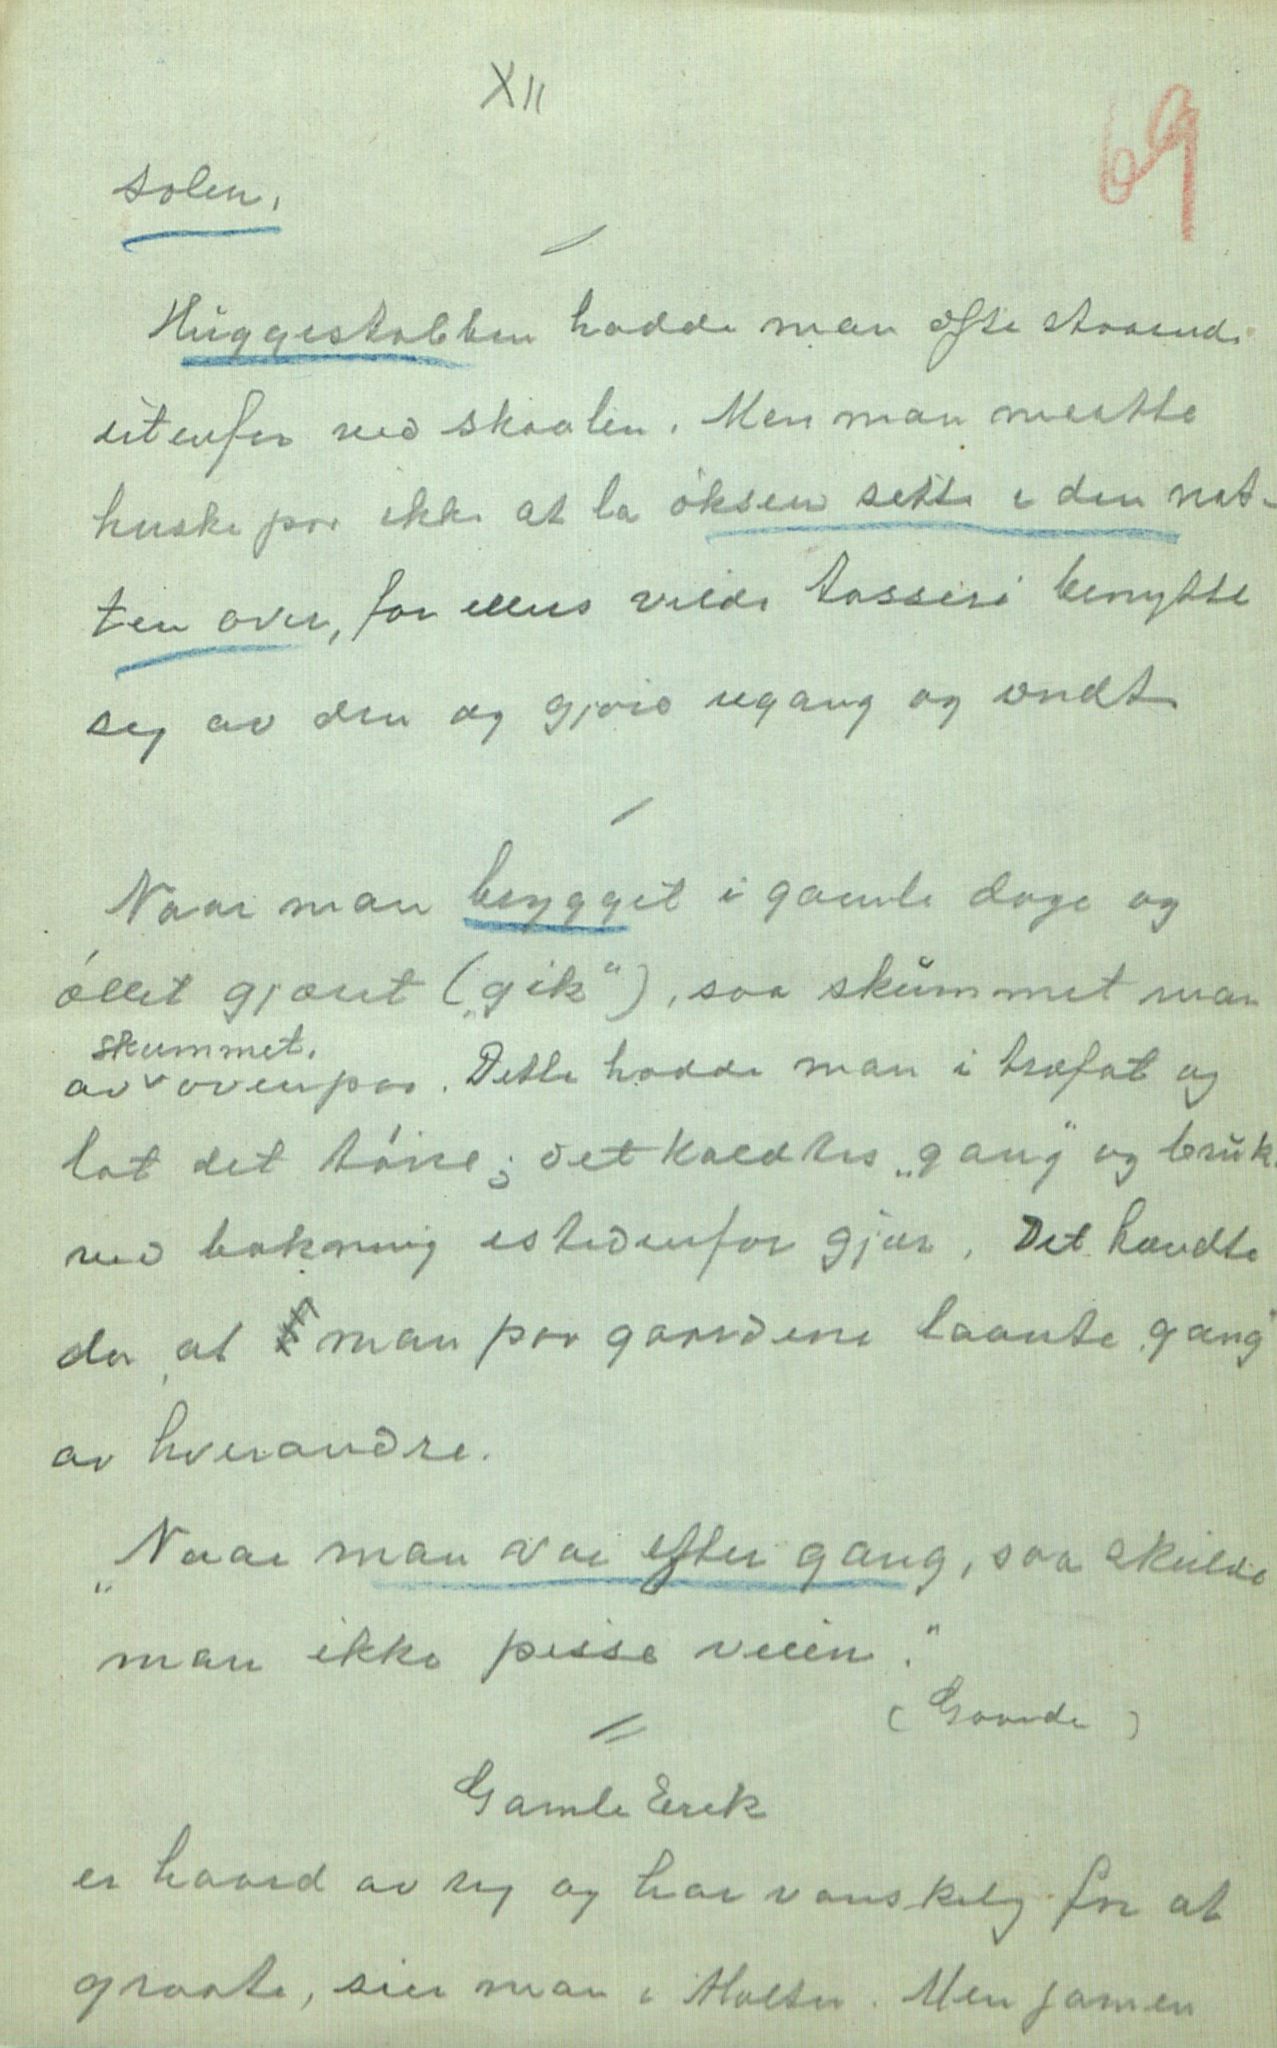 XII
69
solen.
Huggestabben hadde man ofte staaende
utenfor ved skaalen. Men man maatte
huske paa ikke at la øksen sitte i den nat-
ten over, for ellers vilde tasseri benytte
seg av den og gjøre ugang og ondt
Naar man brygget i gamle dage og
øllet gjæret („gik“), saa skummet man
skummet.
av ovenpaa. Dette hadde man i træfat og
lot det tørre; det kaldtes „gang“ og bruk.
ved bakning istedenfor gjær. Det hændte
da, at man paa gaardene laante „gang“
av hverandre.
„Naar man var efter gang, saa skulde
man ikke pisse veien.“
(Gaarde)
Gamle Erik
er haard av seg og har vanskelig for at
graate, sier man i Holter. Men jamen